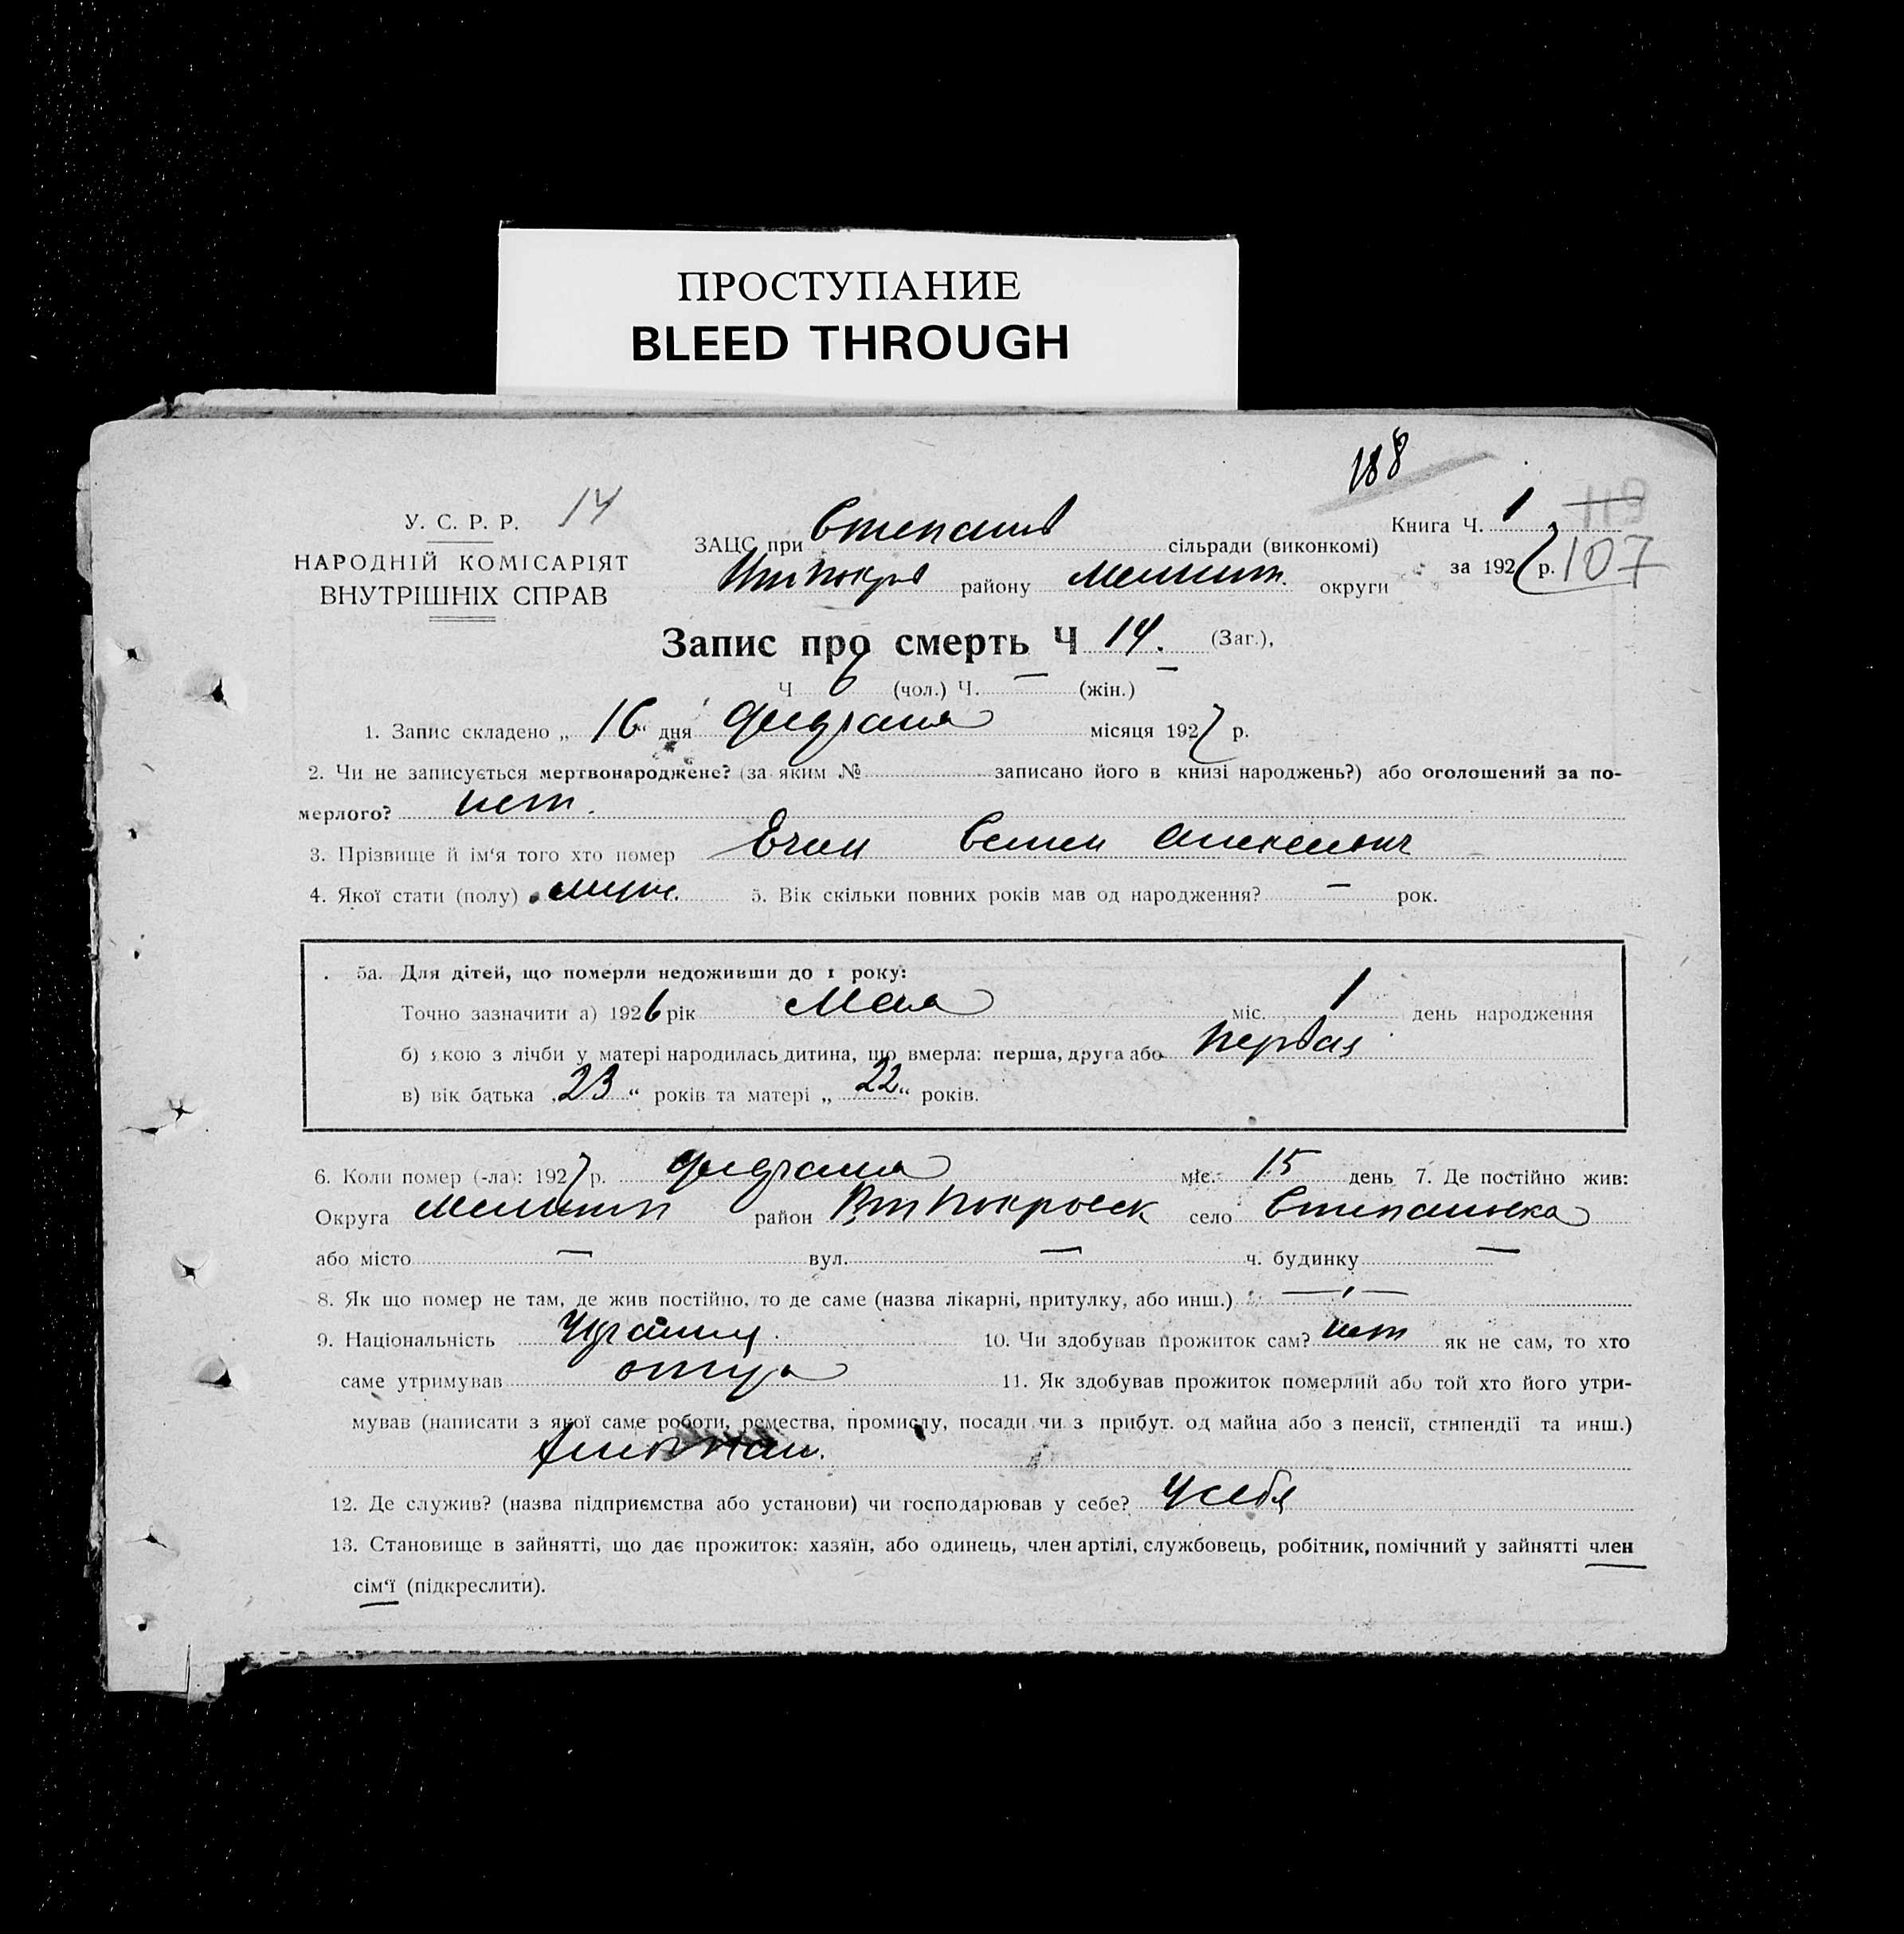 ПРОСТУПАНИЕ
BLEED THROUGH
188
У. С. Р. Р. 14
НАРОДНІЙ КОМІСАРІЯТ
ВНУТРІШНІХ СПРАВ
Книга Ч. 1 119
за 1927 р. 107
ЗАЦС при Степанов сільради (виконкомі)
району Мелитоп. округи
Запис про смерть Ч 14. (Заг.),
Ч 6 (чол.) Ч. — (жін.)
1. Запис складено „ 16 “ дня февраля місяця 1927 р.
2. Чи не записується мертвонароджене? (за яким № записано його в книзі народжень?) або оголошений за по-
мерлого? нет.
3. Прізвище й ім‘я того хто помер Семен Алексеевич
4. Якої стати (полу) муж. 5. Вік скільки повних років мав од народження? — рок.
5а. Для дітей, що померли недоживши до 1 року:
Точно зазначити а) 1926 рік Мая міс. 1 день народження
б) якою з лічби у матері народилась дитина, що вмерла: перша, друга або первая
в) вік батька „ 23 “ років та матері „ 22 “ років.
6. Коли помер (-ла): 1927 р. февраля міс. 15 день 7. Де постійно жив:
Округа Мелитоп район Вт Покровск село Степановка
або місто — вул. — ч. будинку —
8. Як що помер не там, де жив постійно, то де саме (назва лікарні, притулку, або инш.) — „ —
9. Національність 10. Чи здобував прожиток сам? нет як не сам, то хто
саме утримував отца 11. Як здобував прожиток померлий або той хто його утри-
мував (написати з якої саме роботи, ремества, промислу, посади чи з прибут. од майна або з пенсії, стипендії та инш.)
12. Де служив? (назва підприємства або установи) чи господарював у себе? У себя
13. Становище в зайнятті, що дає прожиток: хазяїн, або одинець, член артілі, службовець, робітник, помічний у зайнятті член
сім‘ї (підкреслити).